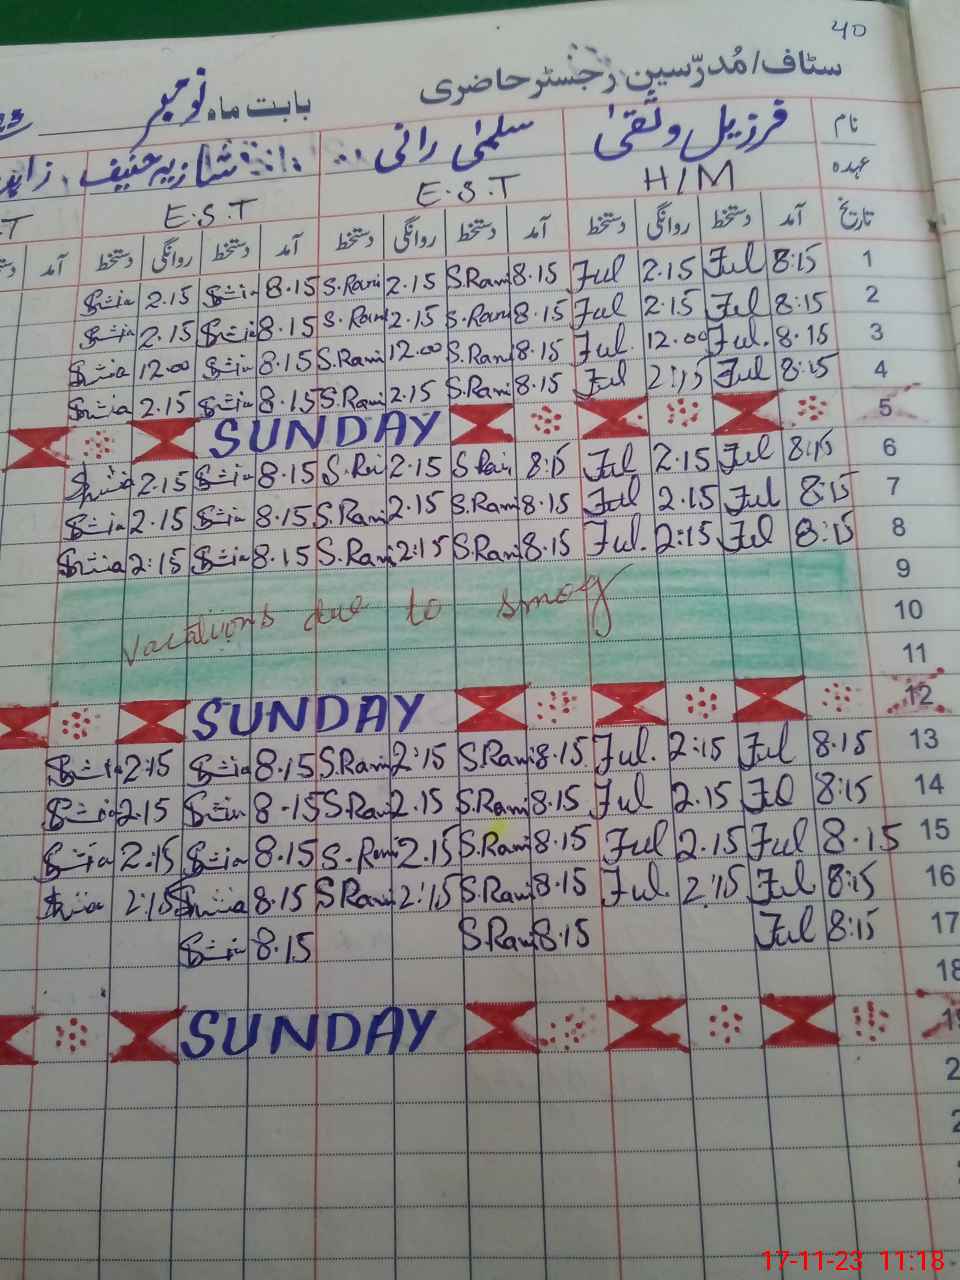 40
سٹاف/مُدرّسین رجسٹر حاضری
بابت ماہ نومبر
نام فرزیل وثقیٰ سلمیٰ رانی شازیہ حنیف
عہدہ H/M E.S.T E.S.T
تاریخ آمد دستخط روانگی دستخط آمد دستخط روانگی دستخط آمد دستخط روانگی دستخط آمد
1 8:15 Ful 2.15 Ful 8.15 S.Rani 2.15 S.Rani 8.15 2.15
2 8:15 Ful 2.15 Ful 8.15 S.Rani 2.15 S.Rani 8.15 2.15
3 8.15 Ful. 12.00 Ful. 8.15 S.Rani 12.00 S.Rani 8.15 12.00
4 8:15 Ful 2:15 Ful 8.15 S.Rani 2.15 S.Rani 8.15 2.15
5 SUNDAY
6 8:15 Ful 2.15 Ful 8:15 S Rani 2.15 S.Rani 8.15 2.15
7 8:15 Ful 2.15 Ful 8.15 S.Rani 2.15 S.Rani 8.15 2.15
8 8:15 Ful 2:15 Ful. 8.15 S.Rani 2:15 S.Rani 8.15 2:15
9
10 Vacations due to smog
11
12 SUNDAY
13 8.15 Ful 2:15 Ful. 8.15 S.Rani 2:15 S.Rani 8.15 2:15
14 8:15 Ful 2.15 Ful 8.15 S.Rani 2.15 S.Rani 8-15 2.15
15 8.15 Ful 2.15 Ful 8.15 S.Rani 2.15 S.Rani 8.15 2:15
16 8:15 Ful 2:15 Ful. 8.15 S.Rani 2:15 S Rani 8.15 2:15
17 8:15 Ful 8.15 S.Rani 8.15
18
19 SUNDAY
17-11-23 11:18